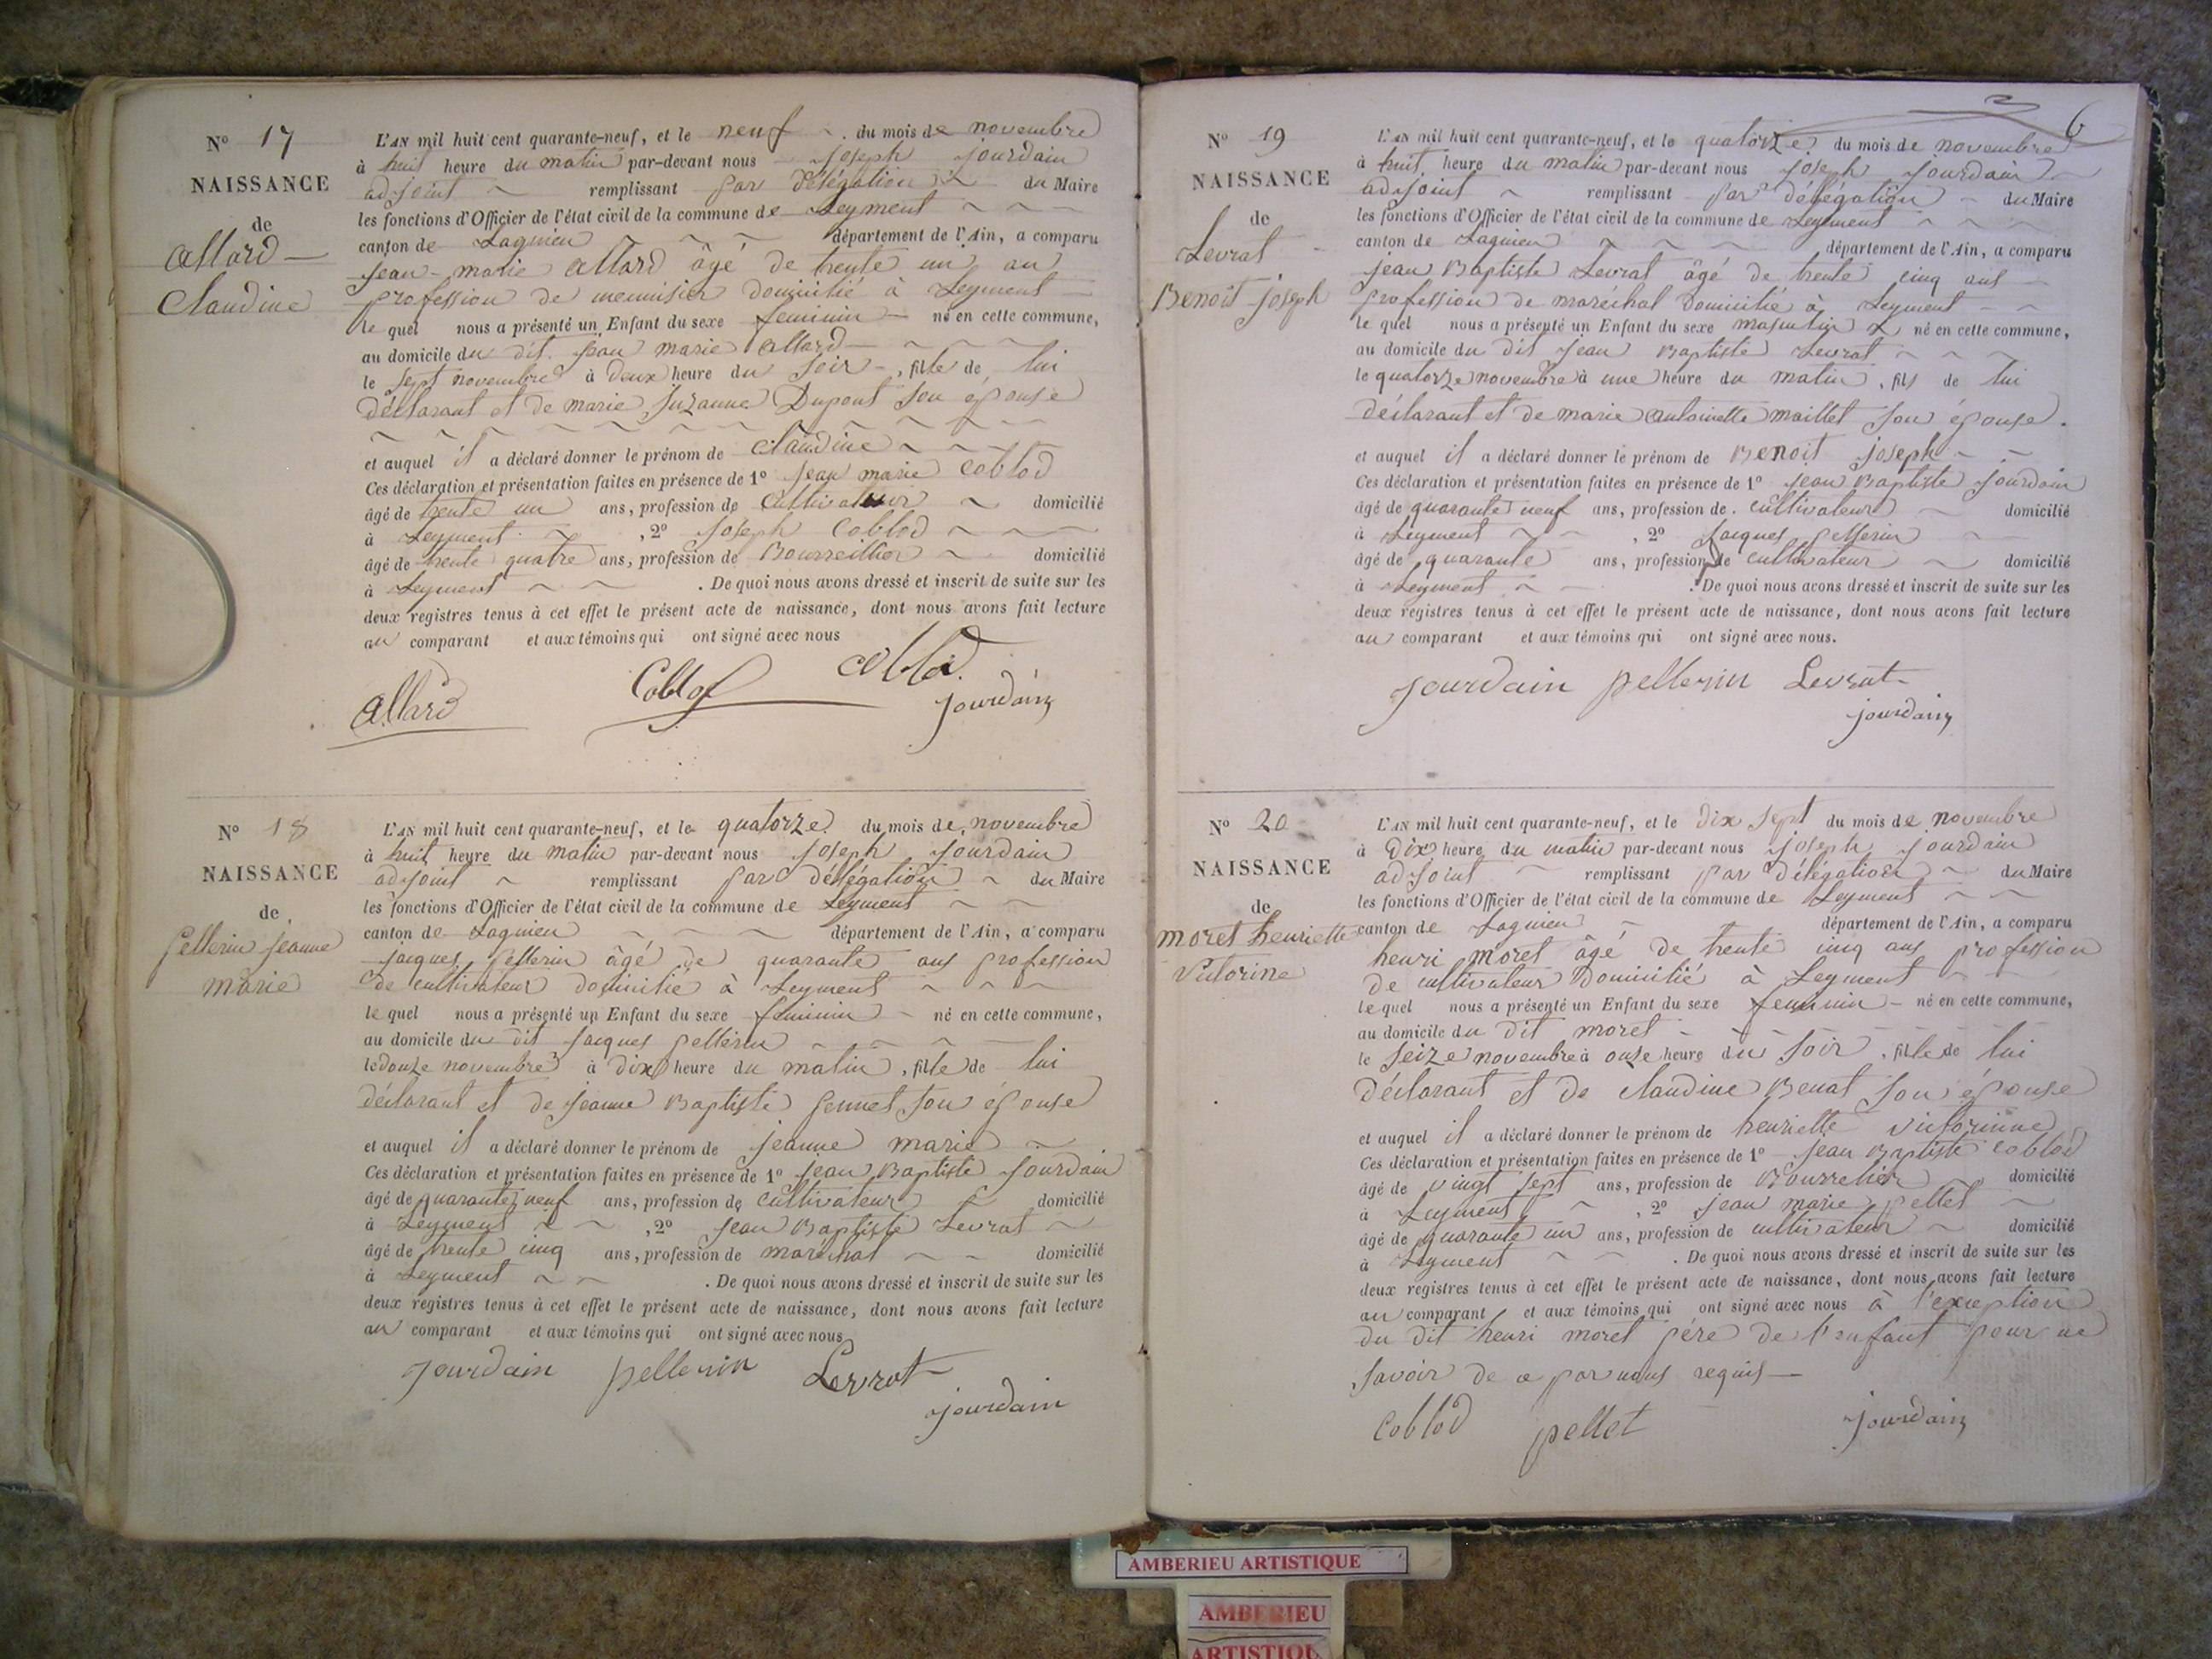 N° 17
NAISSANCE
de
Allard
Claudine
L'AN mil huit cent quarante-neuf, et le neuf du mois de novembre
à huit heure du matin par-devant nous joseph jourdain
adjoint remplissant par délégation du Maire
les fonctions d'Officier de l'état civil de la commune de Leyment
canton de Lagnieu département de l'Ain, a comparu
jean-marie allard âgé de trente un an
profession de menuisier domicilié à Leyment
le quel nous a présenté un Enfant du sexe feminin né en cette commune,
au domicile du dit jean marie allard
le sept novembre à deux heure du soir, fille de lui
déclarant et de marie suzanne Dupont son épouse
et auquel il a déclaré donner le prénom de claudine
Ces déclaration et présentation faites en présence de 1° jean marie coblod
âgé de trente un ans, profession de cultivateur domicilié
à Leyment, 2° joseph coblod
âgé de trente quatre ans, profession de Bourrellier domicilié
à Leyment. De quoi nous avons dressé et inscrit de suite sur les
deux registres tenus à cet effet le présent acte de naissance, dont nous avons fait lecture
au comparant et aux témoins qui ont signé avec nous
allard Coblod coblod
jourdain
N° 18
NAISSANCE
de
Pellerin jeanne
marie
L'AN mil huit cent quarante-neuf, et le quatorze du mois de novembre
à huit heure du matin par-devant nous joseph jourdain
adjoint remplissant par délégation du Maire
les fonctions d'Officier de l'état civil de la commune de Leyment
canton de Lagnieu département de l'Ain, a comparu
jacques pellerin âgé de quarante ans profession
de cultivateur domicilié à Leyment
le quel nous a présenté un Enfant du sexe feminin né en cette commune,
au domicile du dit jacques pellerin
le douze novembre à dix heure du matin, fille de lui
déclarant et de jeanne Baptiste son épouse
et auquel il a déclaré donner le prénom de jeanne marie
Ces déclaration et présentation faites en présence de 1° jean Baptiste jourdain
âgé de quarante neuf ans, profession de cultivateur domicilié
à Leyment, 2° jean Baptiste Levrat
âgé de trente cinq ans, profession de maréchal domicilié
à Leyment. De quoi nous avons dressé et inscrit de suite sur les
deux registres tenus à cet effet le présent acte de naissance, dont nous avons fait lecture
au comparant et aux témoins qui ont signé avec nous
jourdain pellerin Levrat
jourdain
6
N° 19
NAISSANCE
de
Levrat
Benoit joseph
L'AN mil huit cent quarante-neuf, et le quatorze du mois de novembre
à huit heure du matin par-devant nous joseph jourdain
adjoint remplissant par délégation du Maire
les fonctions d'Officier de l'état civil de la commune de Leyment
canton de Lagnieu département de l'Ain, a comparu
jean Baptiste Levrat âgé de trente cinq ans
profession de maréchal domicilié à Leyment
le quel nous a présenté un Enfant du sexe masculin né en cette commune,
au domicile du dit jean Baptiste Levrat
le quatorze novembre à une heure du matin, fils de lui
déclarant et de marie antoinette maillet son épouse.
et auquel il a déclaré donner le prénom de Benoit joseph
Ces déclaration et présentation faites en présence de 1° jean Baptiste jourdain
âgé de quarante neuf ans, profession de cultivateur domicilié
à Leyment, 2° jacques pellerin
âgé de quarante ans, profession de cultivateur domicilié
à Leyment. De quoi nous avons dressé et inscrit de suite sur les
deux registres tenus à cet effet le présent acte de naissance, dont nous avons fait lecture
au comparant et aux témoins qui ont signé avec nous.
jourdain pellerin Levrat
jourdain
N° 20
NAISSANCE
de
moret henriette
victorine
L'AN mil huit cent quarante-neuf, et le dix sept du mois de novembre
à dix heure du matin par-devant nous joseph jourdain
adjoint remplissant par délégation du Maire
les fonctions d'Officier de l'état civil de la commune de Leyment
canton de Lagnieu département de l'Ain, a comparu
henri moret âgé de trente cinq ans profession
de cultivateur domicilié à Leyment
le quel nous a présenté un Enfant du sexe feminin né en cette commune,
au domicile du dit moret
le seize novembre à onze heure du soir, fille de lui
déclarant et de claudine Benat son épouse
et auquel il a déclaré donner le prénom de henriette victorinne
Ces déclaration et présentation faites en présence de 1° jean Baptiste coblod
âgé de vingt sept ans, profession de Bourrelier domicilié
à Leyment, 2° jean marie pellet
âgé de quarante un ans, profession de cultivateur domicilié
à Leyment. De quoi nous avons dressé et inscrit de suite sur les
deux registres tenus à cet effet le présent acte de naissance, dont nous avons fait lecture
au comparant et aux témoins qui ont signé avec nous à l'exception
du dit henri moret père de l'enfant pour ne
savoir de ce par nous requis
coblod pellet jourdain
AMBERIEU ARTISTIQUE
AMBERIEU
ARTISTIQUE